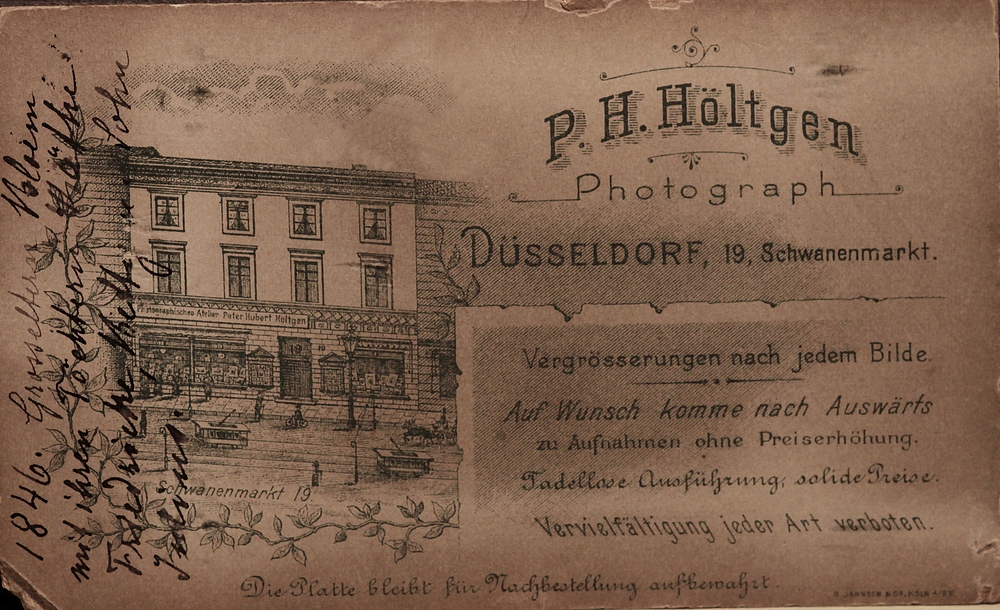 P. H. Höltgen
Photograph
DÜSSELDORF, 19, Schwanenmarkt.
Vergrösserungen nach jedem Bilde.
Auf Wunsch komme nach Auswärts
zu Aufnahmen ohne Preiserhöhung.
Tadellose Ausführung, solide Preise.
Vervielfältigung jeder Art verboten.
Die Platte bleibt für Nachbestellung aufbewahrt.
Photographisches Atelier Peter Hubert Höltgen
19
Schwanenmarkt 19
1846. Grosseltern
mit ihren Töchtern
Friedricke
Sohn